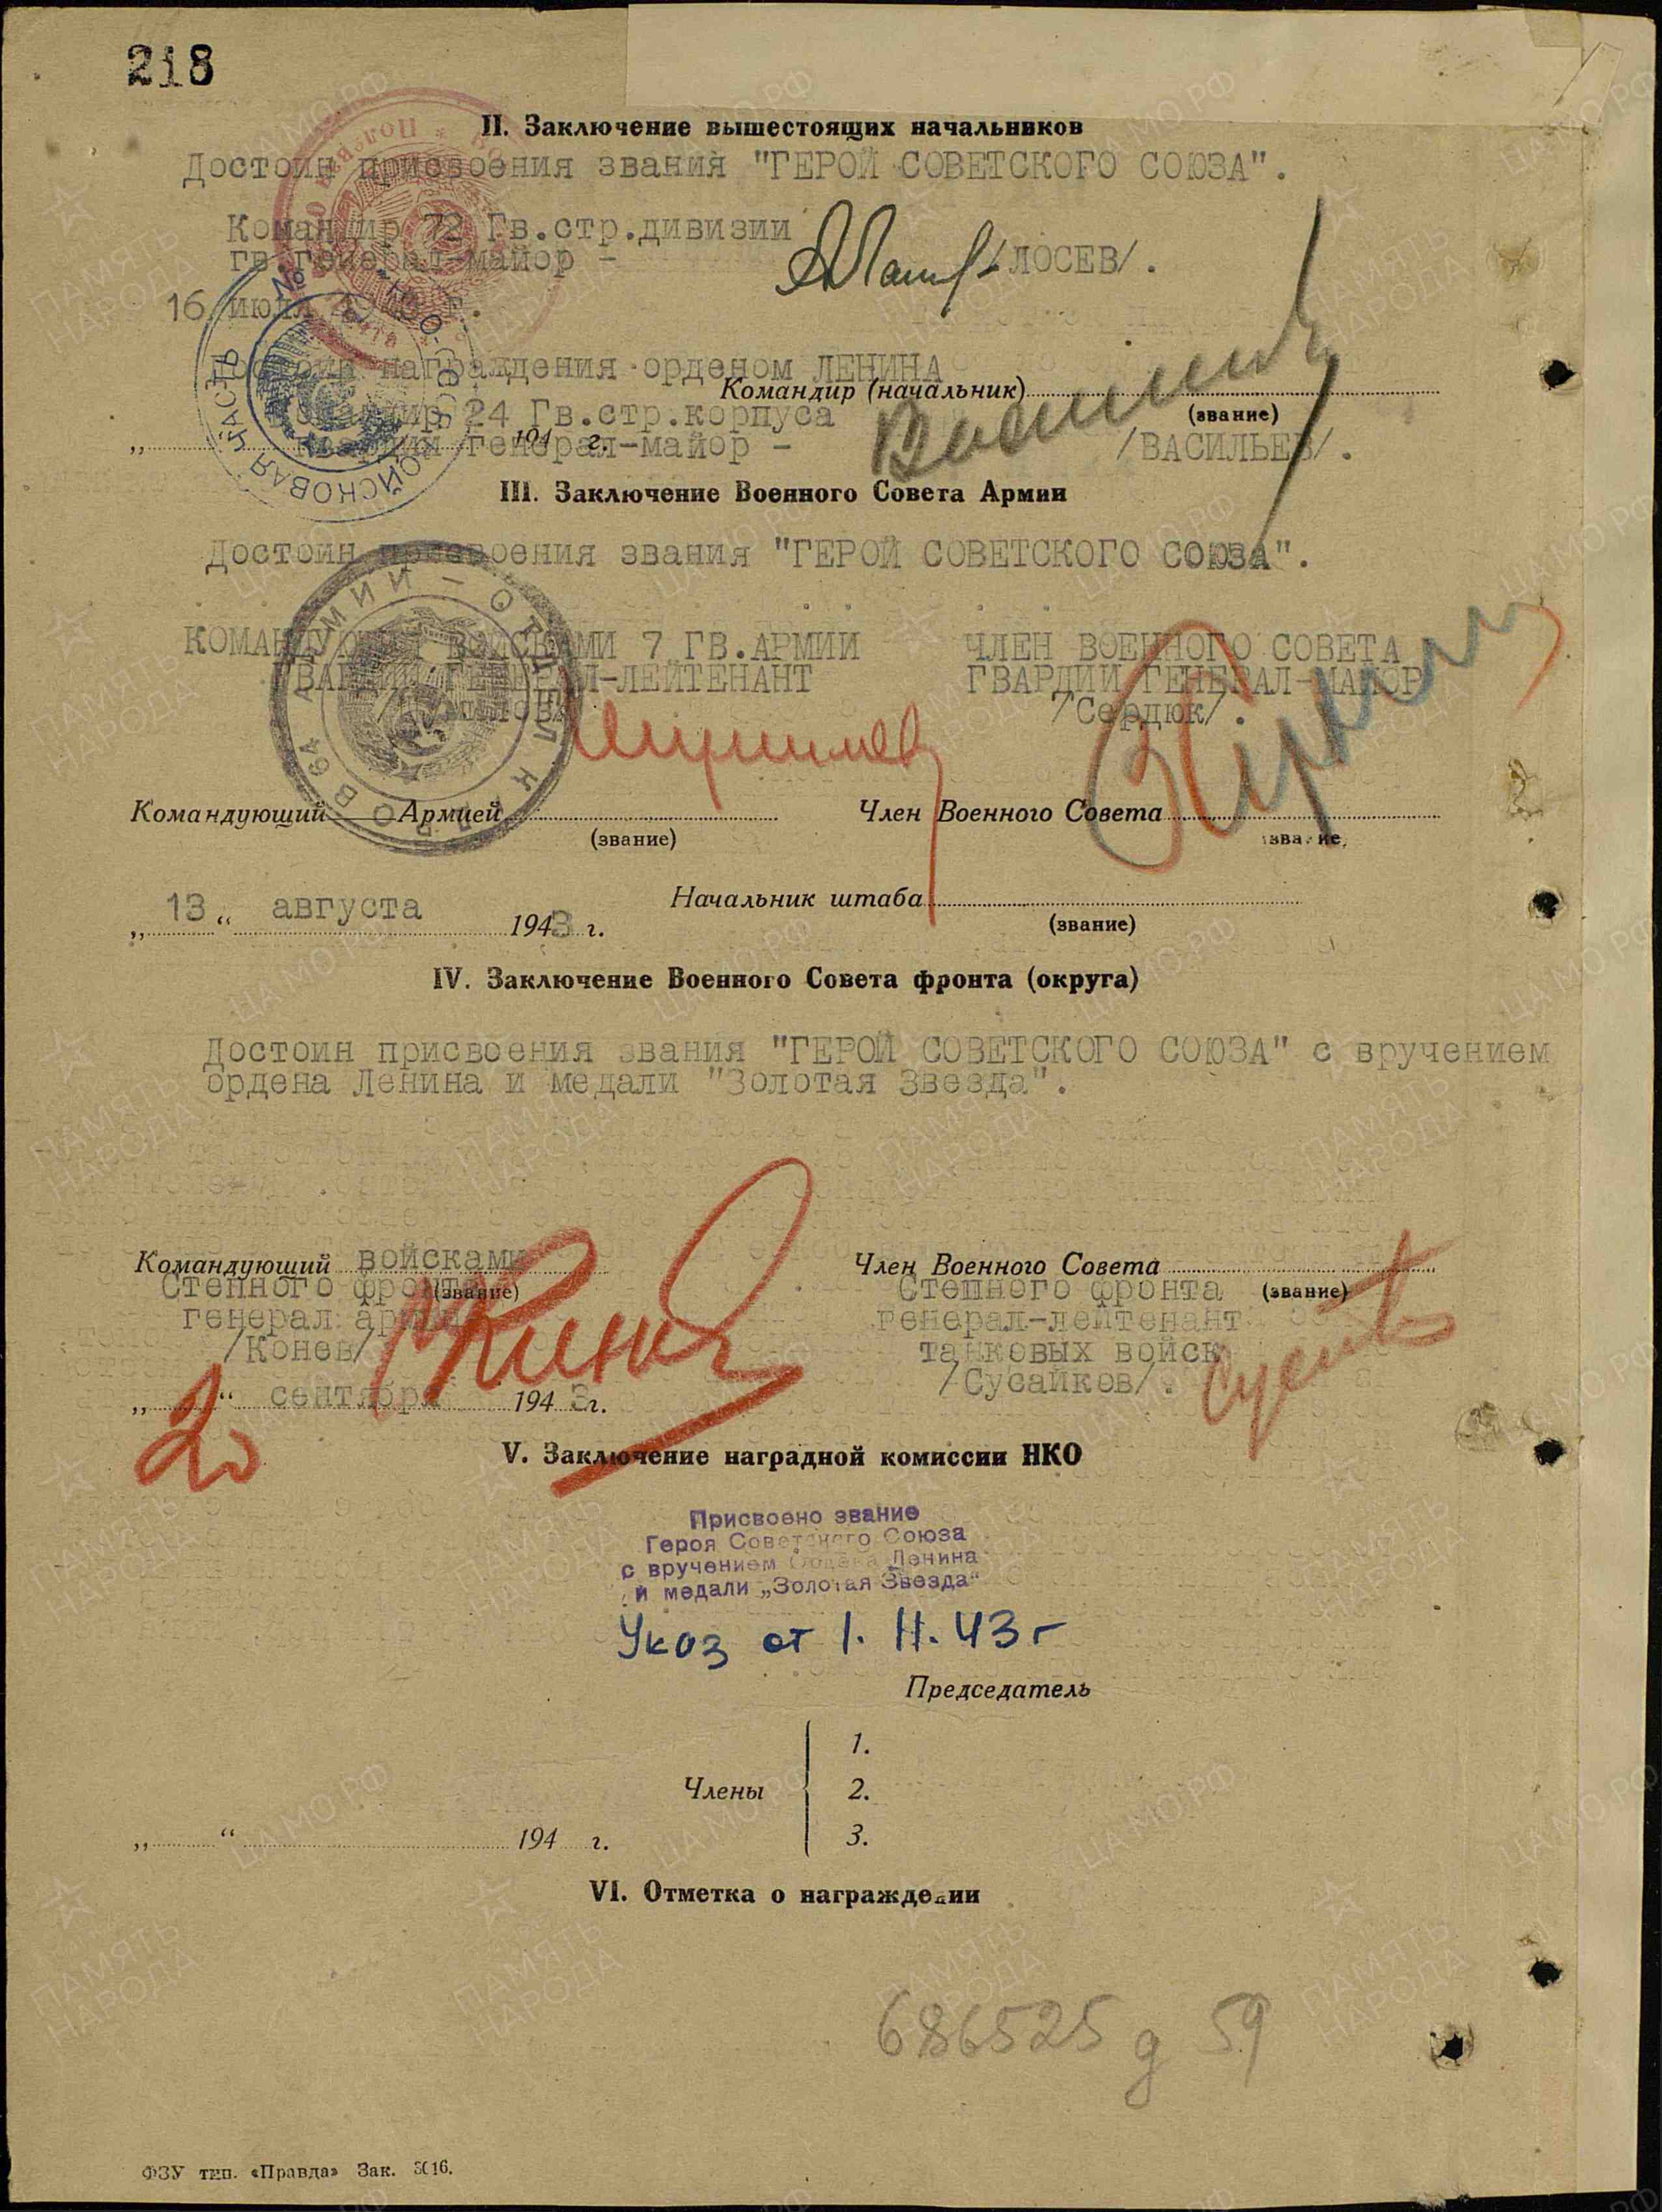 218
II. Заключение вышестоящих начальников
Достоин присвоения звания "ГЕРОЙ СОВЕТСКОГО СОЮЗА".
Командир 72 Гв.стр.дивизии
гв.генерал-майор - /ЛОСЕВ/.
16 июля г.
Достоин награждения орденом ЛЕНИНА
Командир (начальник)
Командир 24 Гв.стр.корпуса (звание)
„ 194 г.
гвардии генерал-майор - /ВАСИЛЬЕВ/.
III. Заключение Военного Совета Армии
Достоин присвоения звания "ГЕРОЙ СОВЕТСКОГО СОЮЗА".
КОМАНДУЮЩИЙ ВОЙСКАМИ 7 ГВ.АРМИИ ЧЛЕН ВОЕННОГО СОВЕТА
ГВАРДИИ ГЕНЕРАЛ-ЛЕЙТЕНАНТ ГВАРДИИ ГЕНЕРАЛ-МАЙОР
/Сердюк/.
Командующий Армией Член Военного Совета
(звание) (звание)
„ 13 “ августа 1943 г. Начальник штаба
(звание)
IV. Заключение Военного Совета фронта (округа)
Достоин присвоения звания "ГЕРОЙ СОВЕТСКОГО СОЮЗА" с вручением
ордена Ленина и медали "Золотая Звезда".
Командующий войсками Член Военного Совета
Степного фронта (звание) Степного фронта (звание)
генерал армии генерал-лейтенант
/Конев/ танковых войск
/Сусайков/.
„ 20 “ сентября 1943 г.
V. Заключение наградной комиссии НКО
Присвоено звание
Героя Советского Союза
с вручением Ордена Ленина
и медали „Золотая Звезда“
Указ от 1. 11. 43 г
Председатель
1.
Члены 2.
3.
„ “ 194 г.
VI. Отметка о награждении
686525 д 59
ФЗУ тип. «Правда» Зак. 3016.
ЦАМО.РФ
ПАМЯТЬ НАРОДА